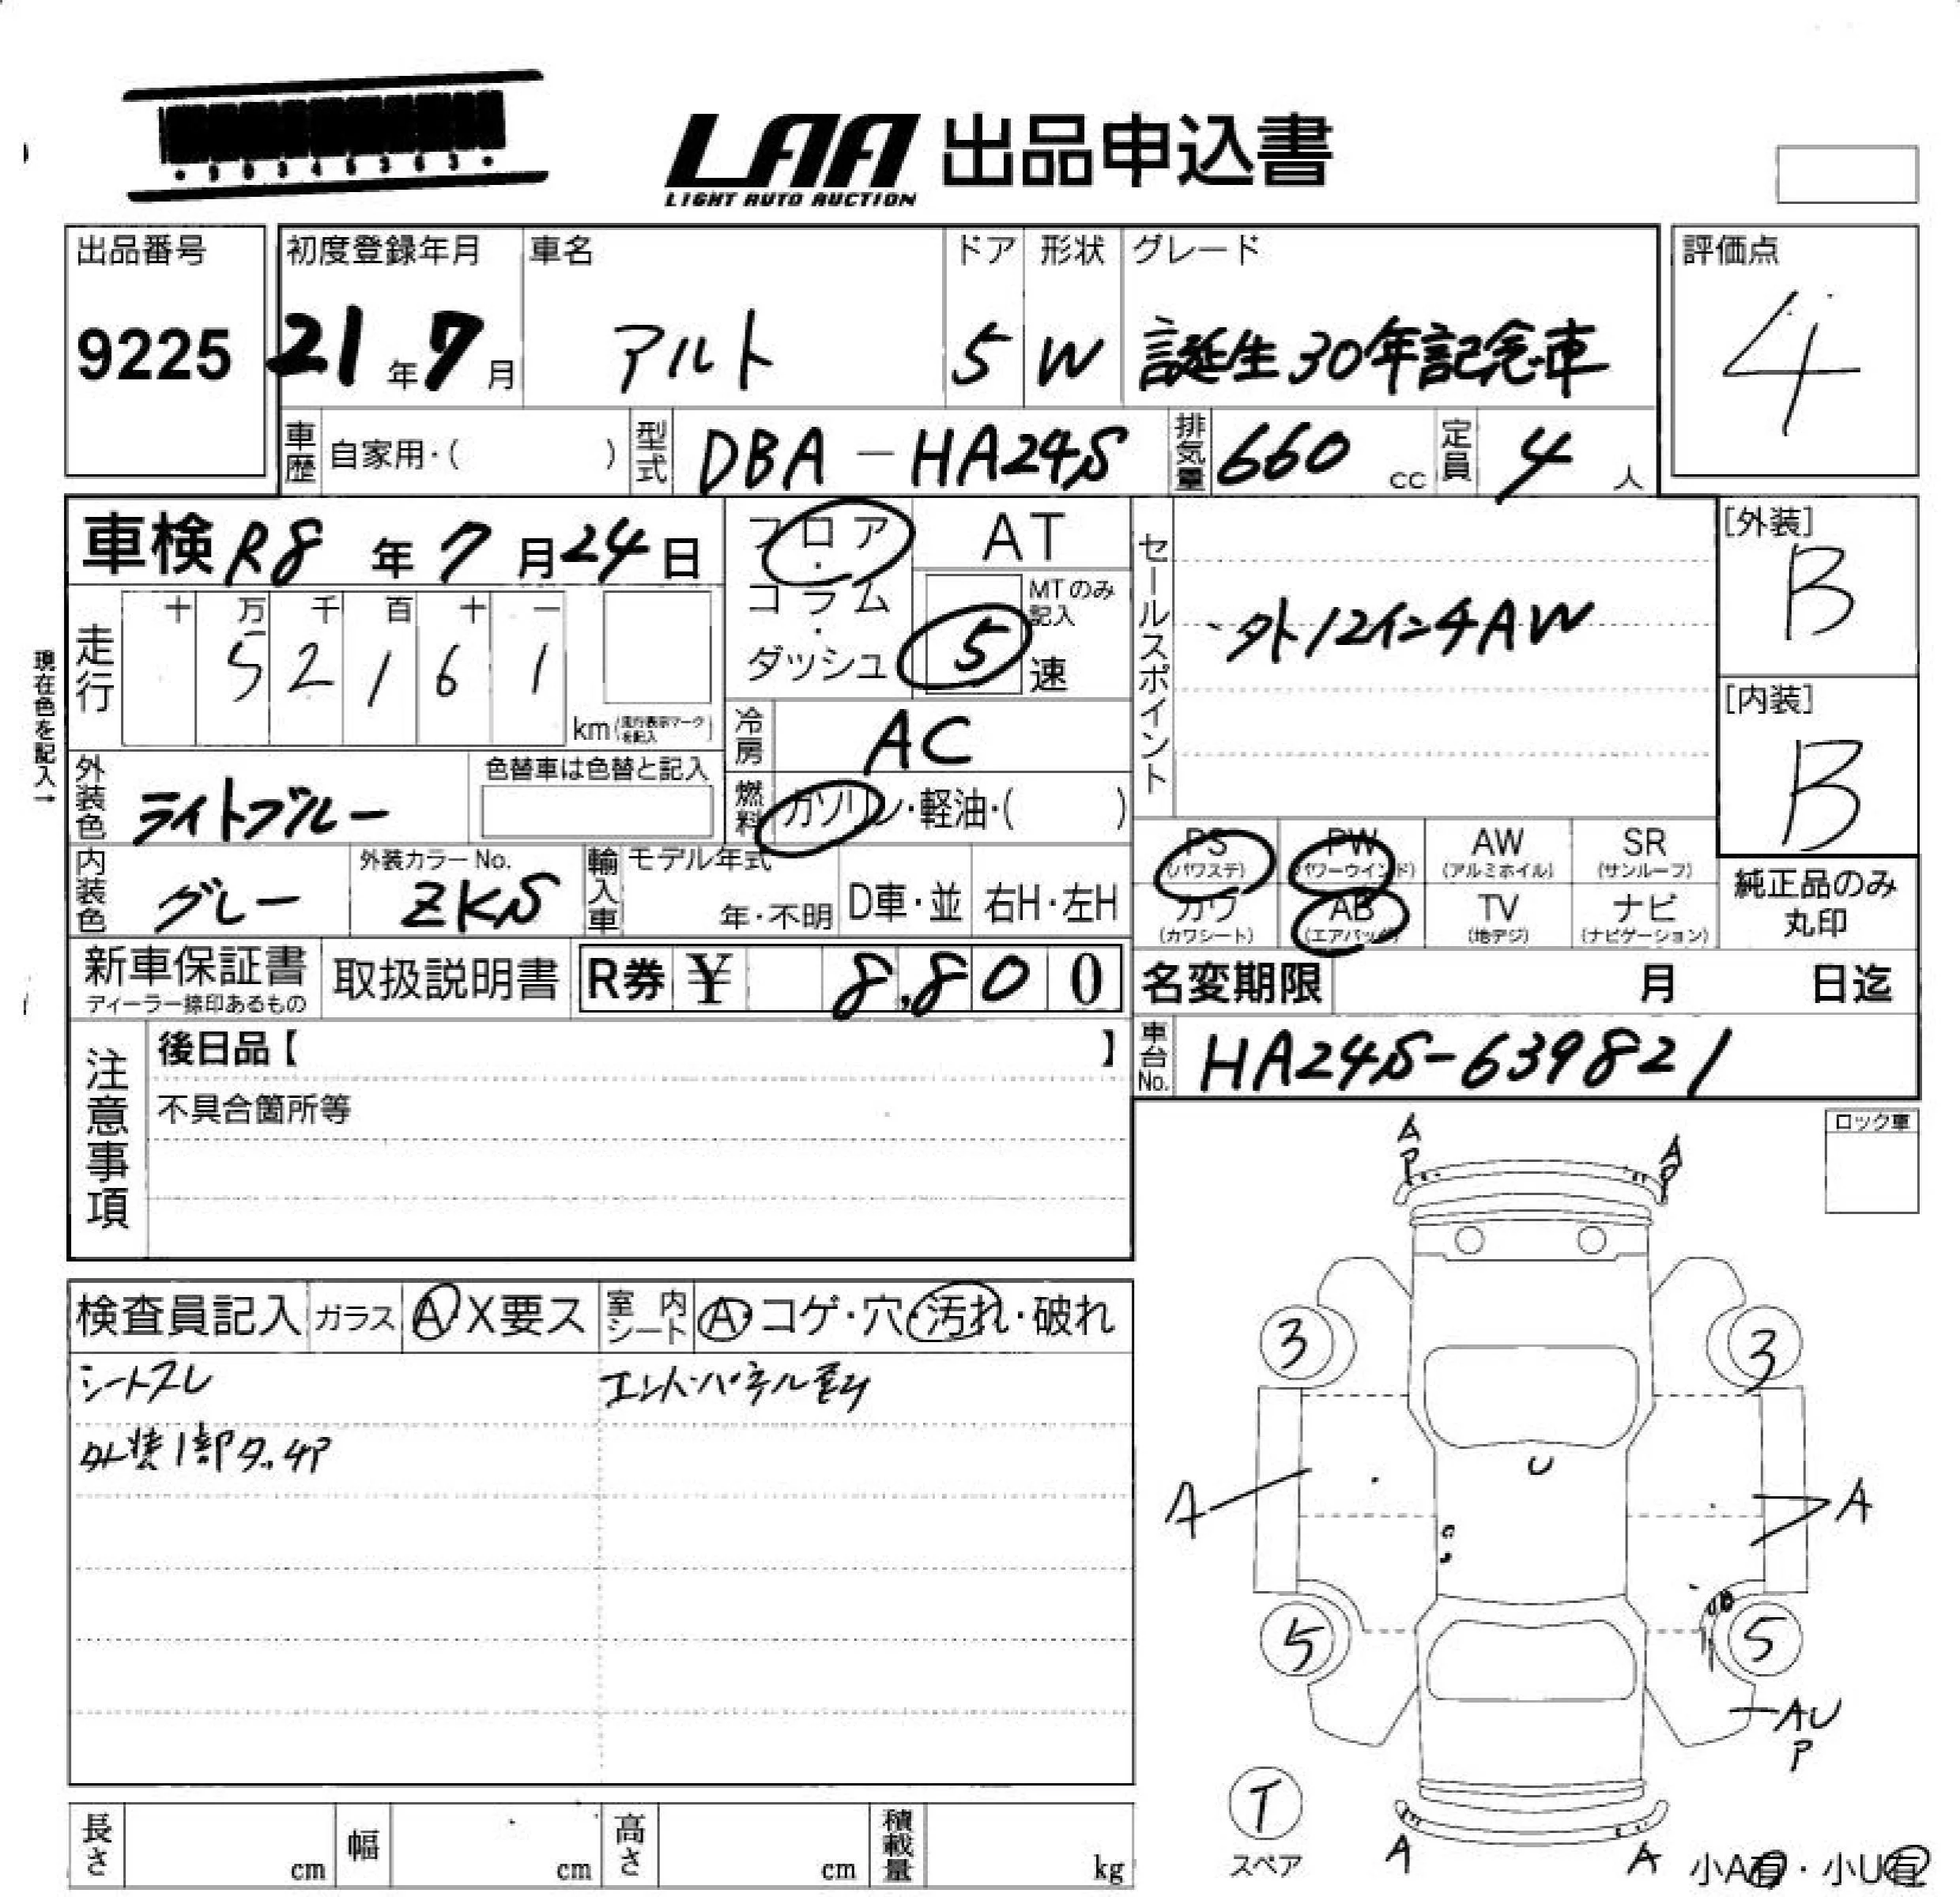 LAA 出品申込書
LIGHT AUTO AUCTION
出品番号
9225
初度登録年月
21年7月
車名
アルト
ドア
5
形状
W
グレード
誕生30年記念車
評価点
4
車歴 自家用・( )
型式 DBA-HA24S
排気量 660 cc
定員 4 人
車検 R8年7月24日
フロア・コラム・ダッシュ
AT
MTのみ記入
5速
セールスポイント
・外12インチAW
[外装]
B
[内装]
B
現在色を記入→
走行
十 万 千 百 十 一
5 2 1 6 1
km(走行表示マークを記入)
冷房 AC
燃料 ガソリン・軽油・( )
外装色 ライトブルー
色替車は色替と記入
内装色 グレー
外装カラーNo.
ZKS
輸入車 モデル年式
年・不明
D車・並
右H・左H
PS (パワステ)
PW (パワーウインド)
AW (アルミホイル)
SR (サンルーフ)
カワ (カワシート)
AB (エアバッグ)
TV (地デジ)
ナビ (ナビゲーション)
純正品のみ
丸印
新車保証書
ディーラー捺印あるもの
取扱説明書
R券 ¥ 8,800
名変期限 月 日迄
車台No. HA24S-639821
注意事項
後日品【 】
不具合箇所等
ロック車
検査員記入
ガラス A・X要ス
室内シート A・コゲ・穴・汚れ・破れ
シートスレ
外装1部タッチP
A
P
A
P
3
3
U
A
A
5
5
AU
P
T
スペア
A
A
小A有・小U有
長さ cm
幅 cm
高さ cm
積載量 kg